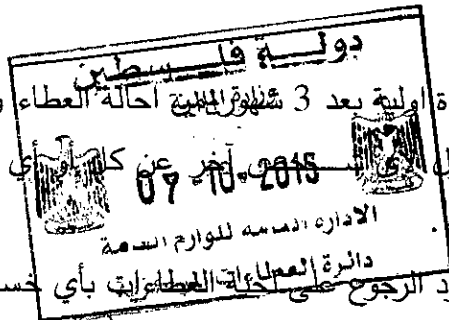 دولة فلسطين
ة اولية بعد 3 شهور احالة العطاء و
آخر عن كل أو أي
07-10-2015
الادارة العامة للوازم العامة
دائرة العطاءات
د الرجوع على لجنة العطاءات بأي خس